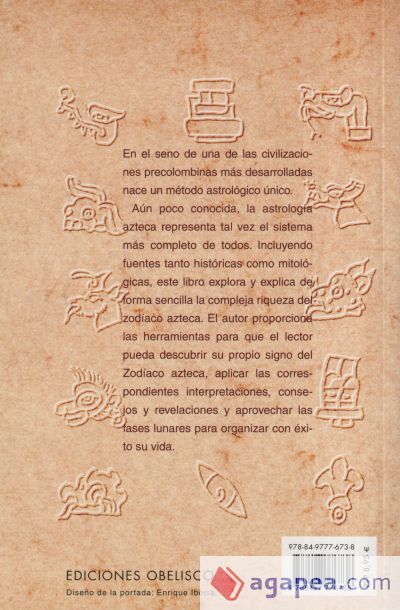 En el seno de una de las civilizacio-
nes precolombinas más desarrolladas
nace un método astrológico único.
Aún poco conocida, la astrología
azteca representa tal vez el sistema
más completo de todos. Incluyendo
fuentes tanto históricas como mitoló-
gicas, este libro explora y explica de
forma sencilla la compleja riqueza del
zodíaco azteca. El autor proporciona
las herramientas para que el lector
pueda descubrir su propio signo del
Zodíaco azteca, aplicar las corres-
pondientes interpretaciones, conse-
jos y revelaciones y aprovechar las
fases lunares para organizar con éxi-
to su vida.
978-84-9777-673-8
EDICIONES OBELISCO
Diseño de la portada: Enrique
agapea.com